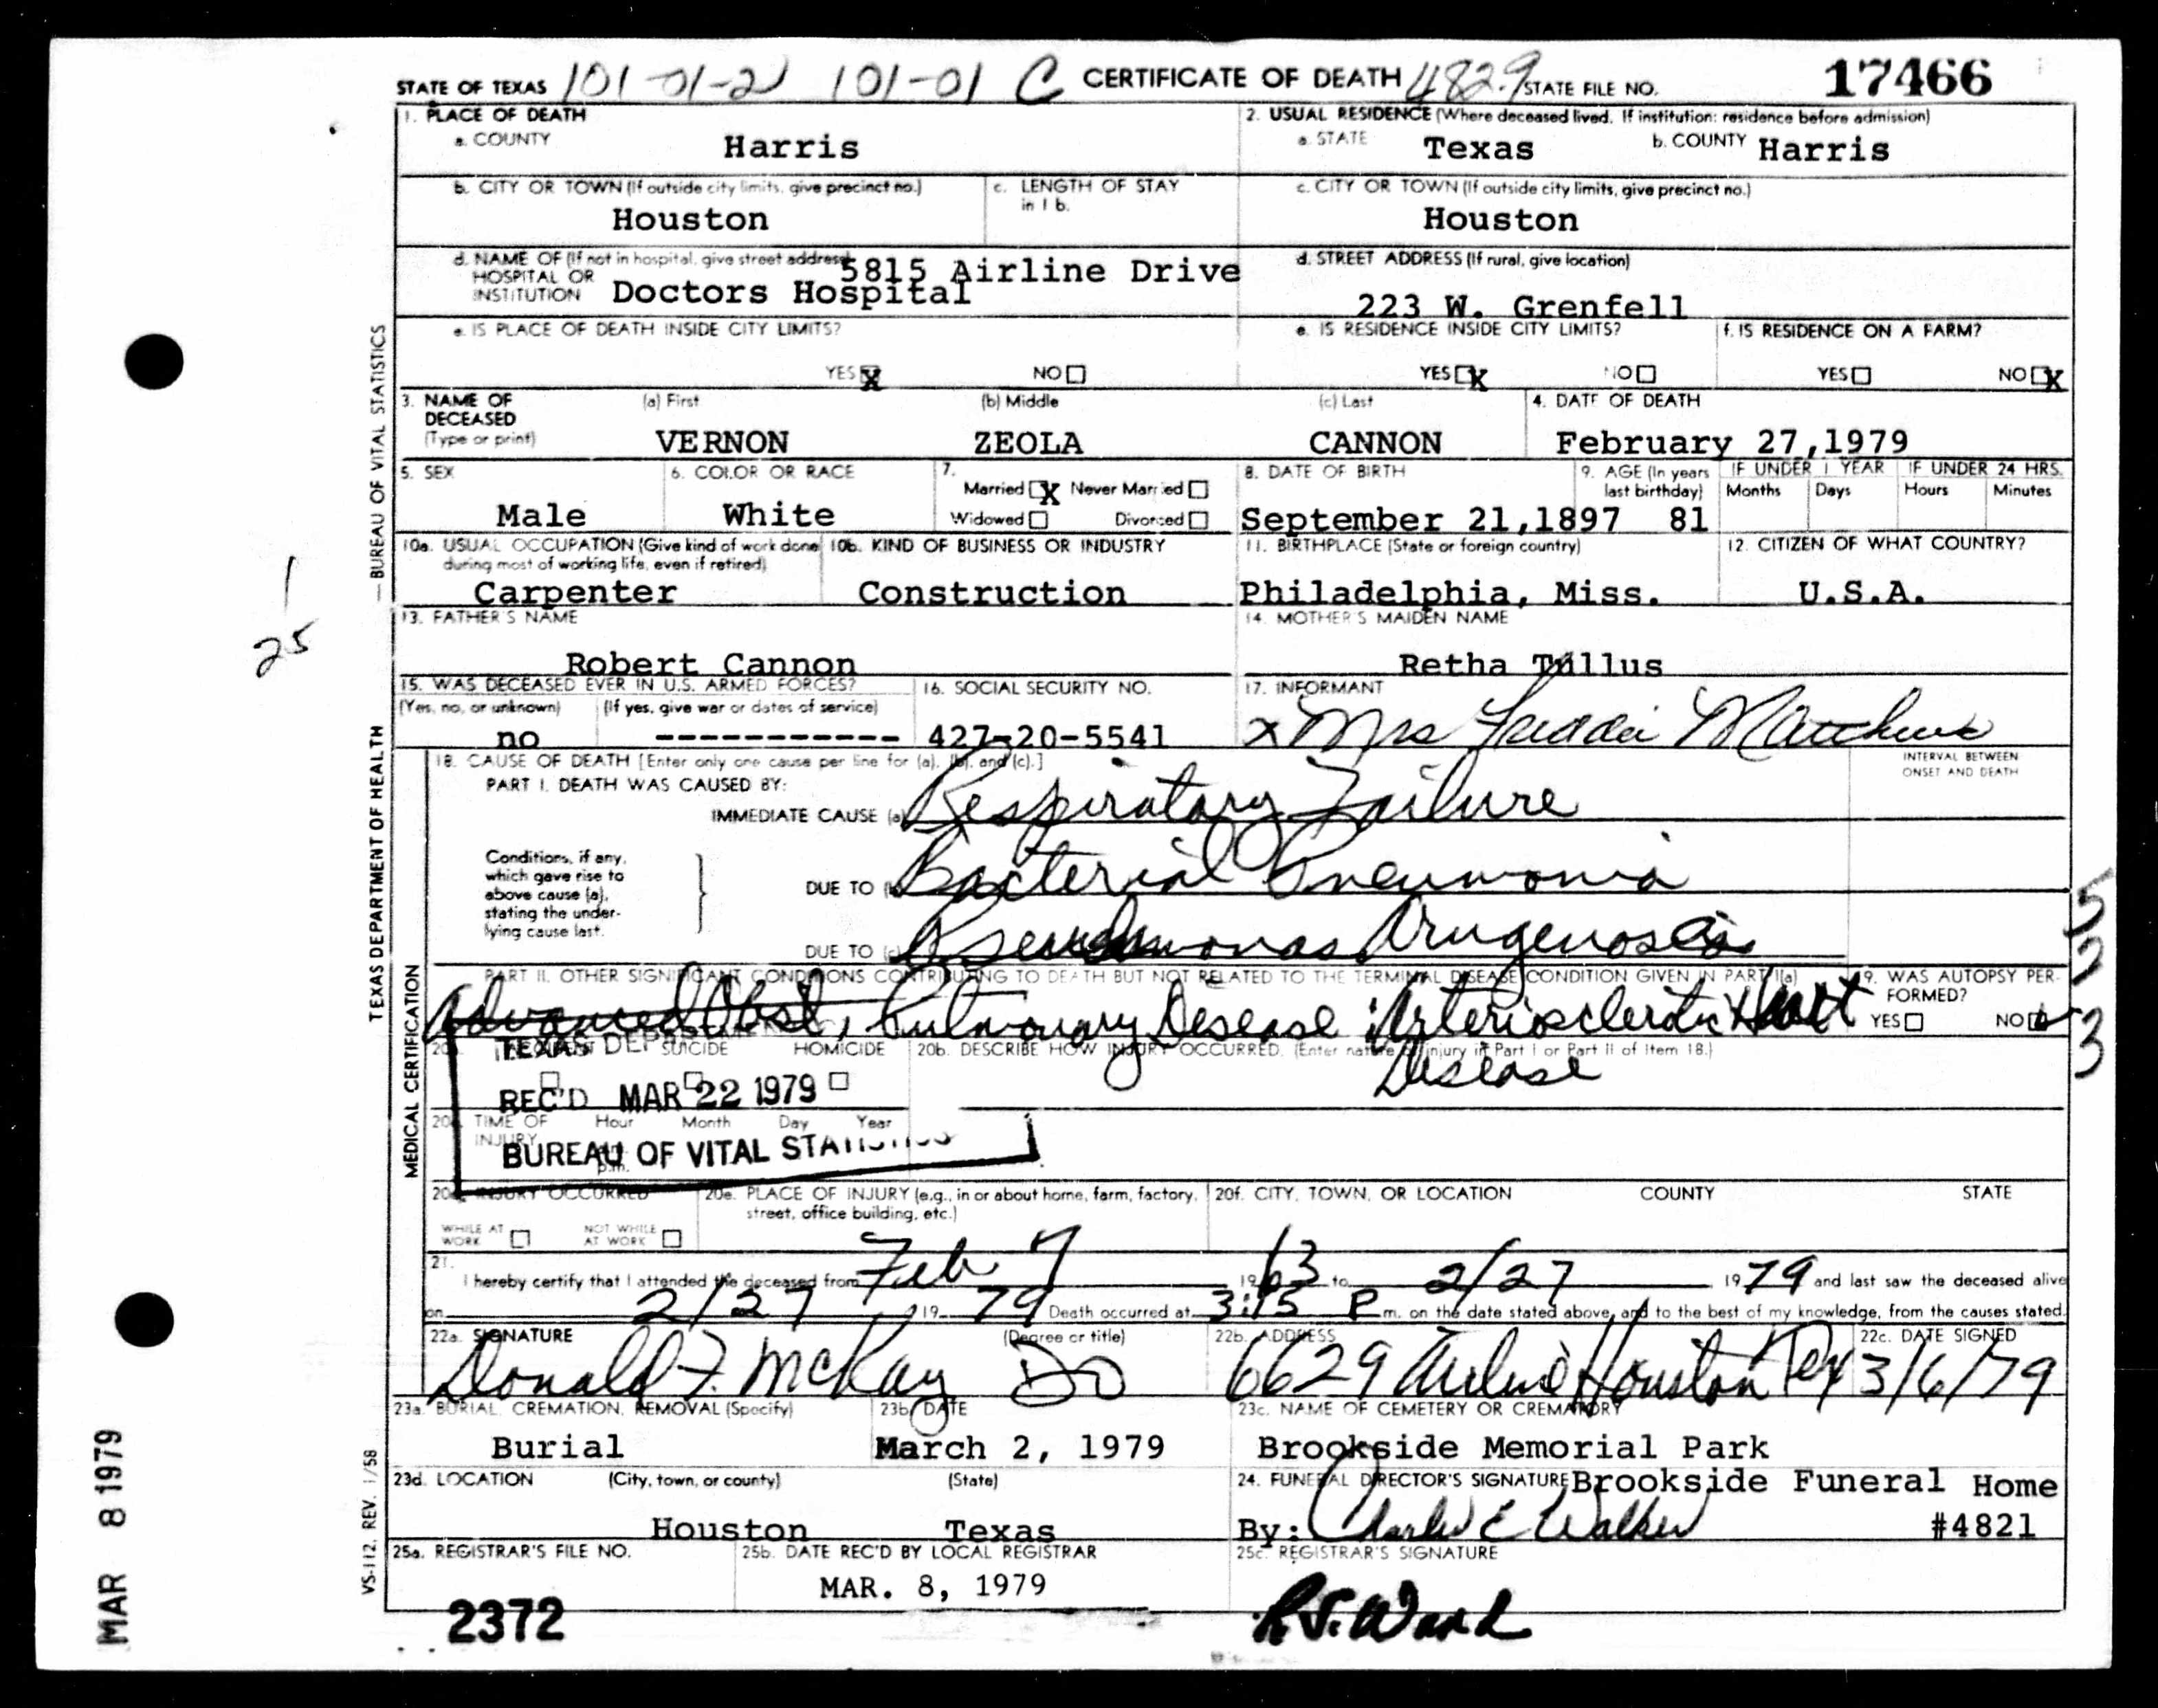 STATE OF TEXAS 101-01-2 101-01 C CERTIFICATE OF DEATH 482.9 STATE FILE NO. 17466
1. PLACE OF DEATH
a. COUNTY Harris
2. USUAL RESIDENCE (Where deceased lived. If institution: residence before admission)
a. STATE Texas b. COUNTY Harris
b. CITY OR TOWN (If outside city limits, give precinct no.) Houston
c. LENGTH OF STAY in 1 b.
c. CITY OR TOWN (If outside city limits, give precinct no.) Houston
d. NAME OF (If not in hospital, give street address) HOSPITAL OR INSTITUTION 5815 Airline Drive
Doctors Hospital
d. STREET ADDRESS (If rural, give location)
223 W. Grenfell
e. IS PLACE OF DEATH INSIDE CITY LIMITS?
YES X NO
e. IS RESIDENCE INSIDE CITY LIMITS?
YES X NO
f. IS RESIDENCE ON A FARM?
YES NO X
3. NAME OF DECEASED (Type or print)
(a) First VERNON
(b) Middle ZEOLA
(c) Last CANNON
4. DATE OF DEATH
February 27,1979
5. SEX Male
6. COLOR OR RACE White
7. Married X Never Married
Widowed Divorced
8. DATE OF BIRTH September 21,1897
9. AGE (In years last birthday) 81
IF UNDER 1 YEAR Months Days
IF UNDER 24 HRS. Hours Minutes
10a. USUAL OCCUPATION (Give kind of work done during most of working life, even if retired) Carpenter
10b. KIND OF BUSINESS OR INDUSTRY Construction
11. BIRTHPLACE (State or foreign country) Philadelphia, Miss.
12. CITIZEN OF WHAT COUNTRY? U.S.A.
13. FATHER'S NAME Robert Cannon
14. MOTHER'S MAIDEN NAME Retha Tullus
15. WAS DECEASED EVER IN U.S. ARMED FORCES?
(Yes, no, or unknown) (If yes, give war or dates of service)
no -----------
16. SOCIAL SECURITY NO. 427-20-5541
17. INFORMANT x Mrs Matthews
18. CAUSE OF DEATH [Enter only one cause per line for (a), (b), and (c).]
INTERVAL BETWEEN ONSET AND DEATH
PART I. DEATH WAS CAUSED BY:
IMMEDIATE CAUSE (a) Respiratory Failure
Conditions, if any, which gave rise to above cause (a), stating the underlying cause last.
DUE TO (b) Bacterial Pneumonia
DUE TO (c) Pseudomonas
PART II. OTHER SIGNIFICANT CONDITIONS CONTRIBUTING TO DEATH BUT NOT RELATED TO THE TERMINAL DISEASE CONDITION GIVEN IN PART I(a)
Advanced Obst, Pulmonary Desease Arteriosclerotic Heart
Disease
19. WAS AUTOPSY PERFORMED?
YES NO
SUICIDE HOMICIDE
20b. DESCRIBE HOW INJURY OCCURRED. (Enter nature of injury in Part I or Part II of Item 18.)
TEXAS
REC'D MAR 22 1979
BUREAU OF VITAL STATISTICS
TIME OF INJURY Hour Month Day Year
p.m.
INJURY OCCURRED
WHILE AT WORK NOT WHILE AT WORK
20e. PLACE OF INJURY (e.g., in or about home, farm, factory, street, office building, etc.)
20f. CITY, TOWN, OR LOCATION COUNTY STATE
21. I hereby certify that I attended the deceased from Feb 7 1963 to 2/27 1979 and last saw the deceased alive
on 2/27, 1979 Death occurred at 3:15 P m. on the date stated above, and to the best of my knowledge, from the causes stated.
22a. SIGNATURE (Degree or title) Donald F. McKay DO
22b. ADDRESS 6629 Airline Houston Tex
22c. DATE SIGNED 3/6/79
23a. BURIAL, CREMATION, REMOVAL (Specify) Burial
23b. DATE March 2, 1979
23c. NAME OF CEMETERY OR CREMATORY Brookside Memorial Park
23d. LOCATION (City, town, or county) (State)
Houston Texas
24. FUNERAL DIRECTOR'S SIGNATURE Brookside Funeral Home
By: Charles E Walker #4821
25a. REGISTRAR'S FILE NO. 2372
25b. DATE REC'D BY LOCAL REGISTRAR MAR. 8, 1979
25c. REGISTRAR'S SIGNATURE
Ward
VS-112, REV. 1/58
TEXAS DEPARTMENT OF HEALTH — BUREAU OF VITAL STATISTICS
MEDICAL CERTIFICATION
MAR 8 1979
1
25
5
2
3